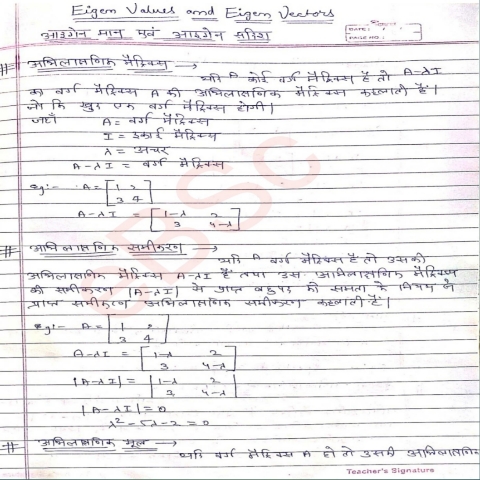 Eigen Values and Eigen Vectors
आइगेन मान एवं आइगेन सदिश
DATE:
PAGE NO.:
# अभिलाक्षणिक मैट्रिक्स → यदि A कोई वर्ग मैट्रिक्स है तो A-λI
को वर्ग मैट्रिक्स A की अभिलाक्षणिक मैट्रिक्स कहलाती है।
जो कि खुद एक वर्ग मैट्रिक्स होगी।
जहाँ A = वर्ग मैट्रिक्स
I = इकाई मैट्रिक्स
λ = अचर
A-λI = वर्ग मैट्रिक्स
eg:- A = [1 2
3 4]
A-λI = [1-λ 2
3 4-λ]
# अभिलाक्षणिक समीकरण → यदि A वर्ग मैट्रिक्स है तो उसकी
अभिलाक्षणिक मैट्रिक्स A-λI है तथा उस अभिलाक्षणिक मैट्रिक्स
की समीकरण |A-λI| से प्राप्त बहुपद की समता के
प्राप्त समीकरण अभिलाक्षणिक समीकरण कहलाती है।
eg:- A = [1 2
3 4]
A-λI = [1-λ 2
3 4-λ]
|A-λI| = [1-λ 2
3 4-λ]
|A-λI| = 0
λ²-5λ-2=0
# अभिलाक्षणिक मूल → यदि वर्ग मैट्रिक्स A हो तो उसकी अभिलाक्षणिक
Teacher's Signature